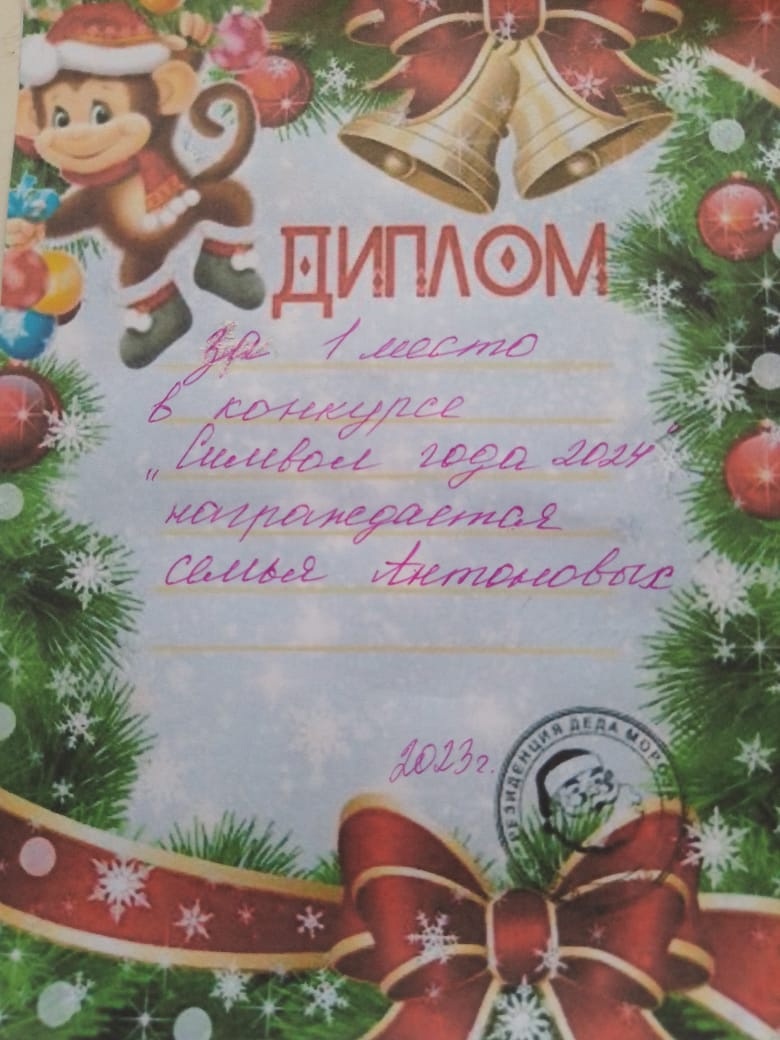 ДИПЛОМ
за 1 место
в конкурсе
„Символ года 2024"
награждается
семья Антоновых
2023г.
РЕЗИДЕНЦИЯ ДЕДА МОРОЗА